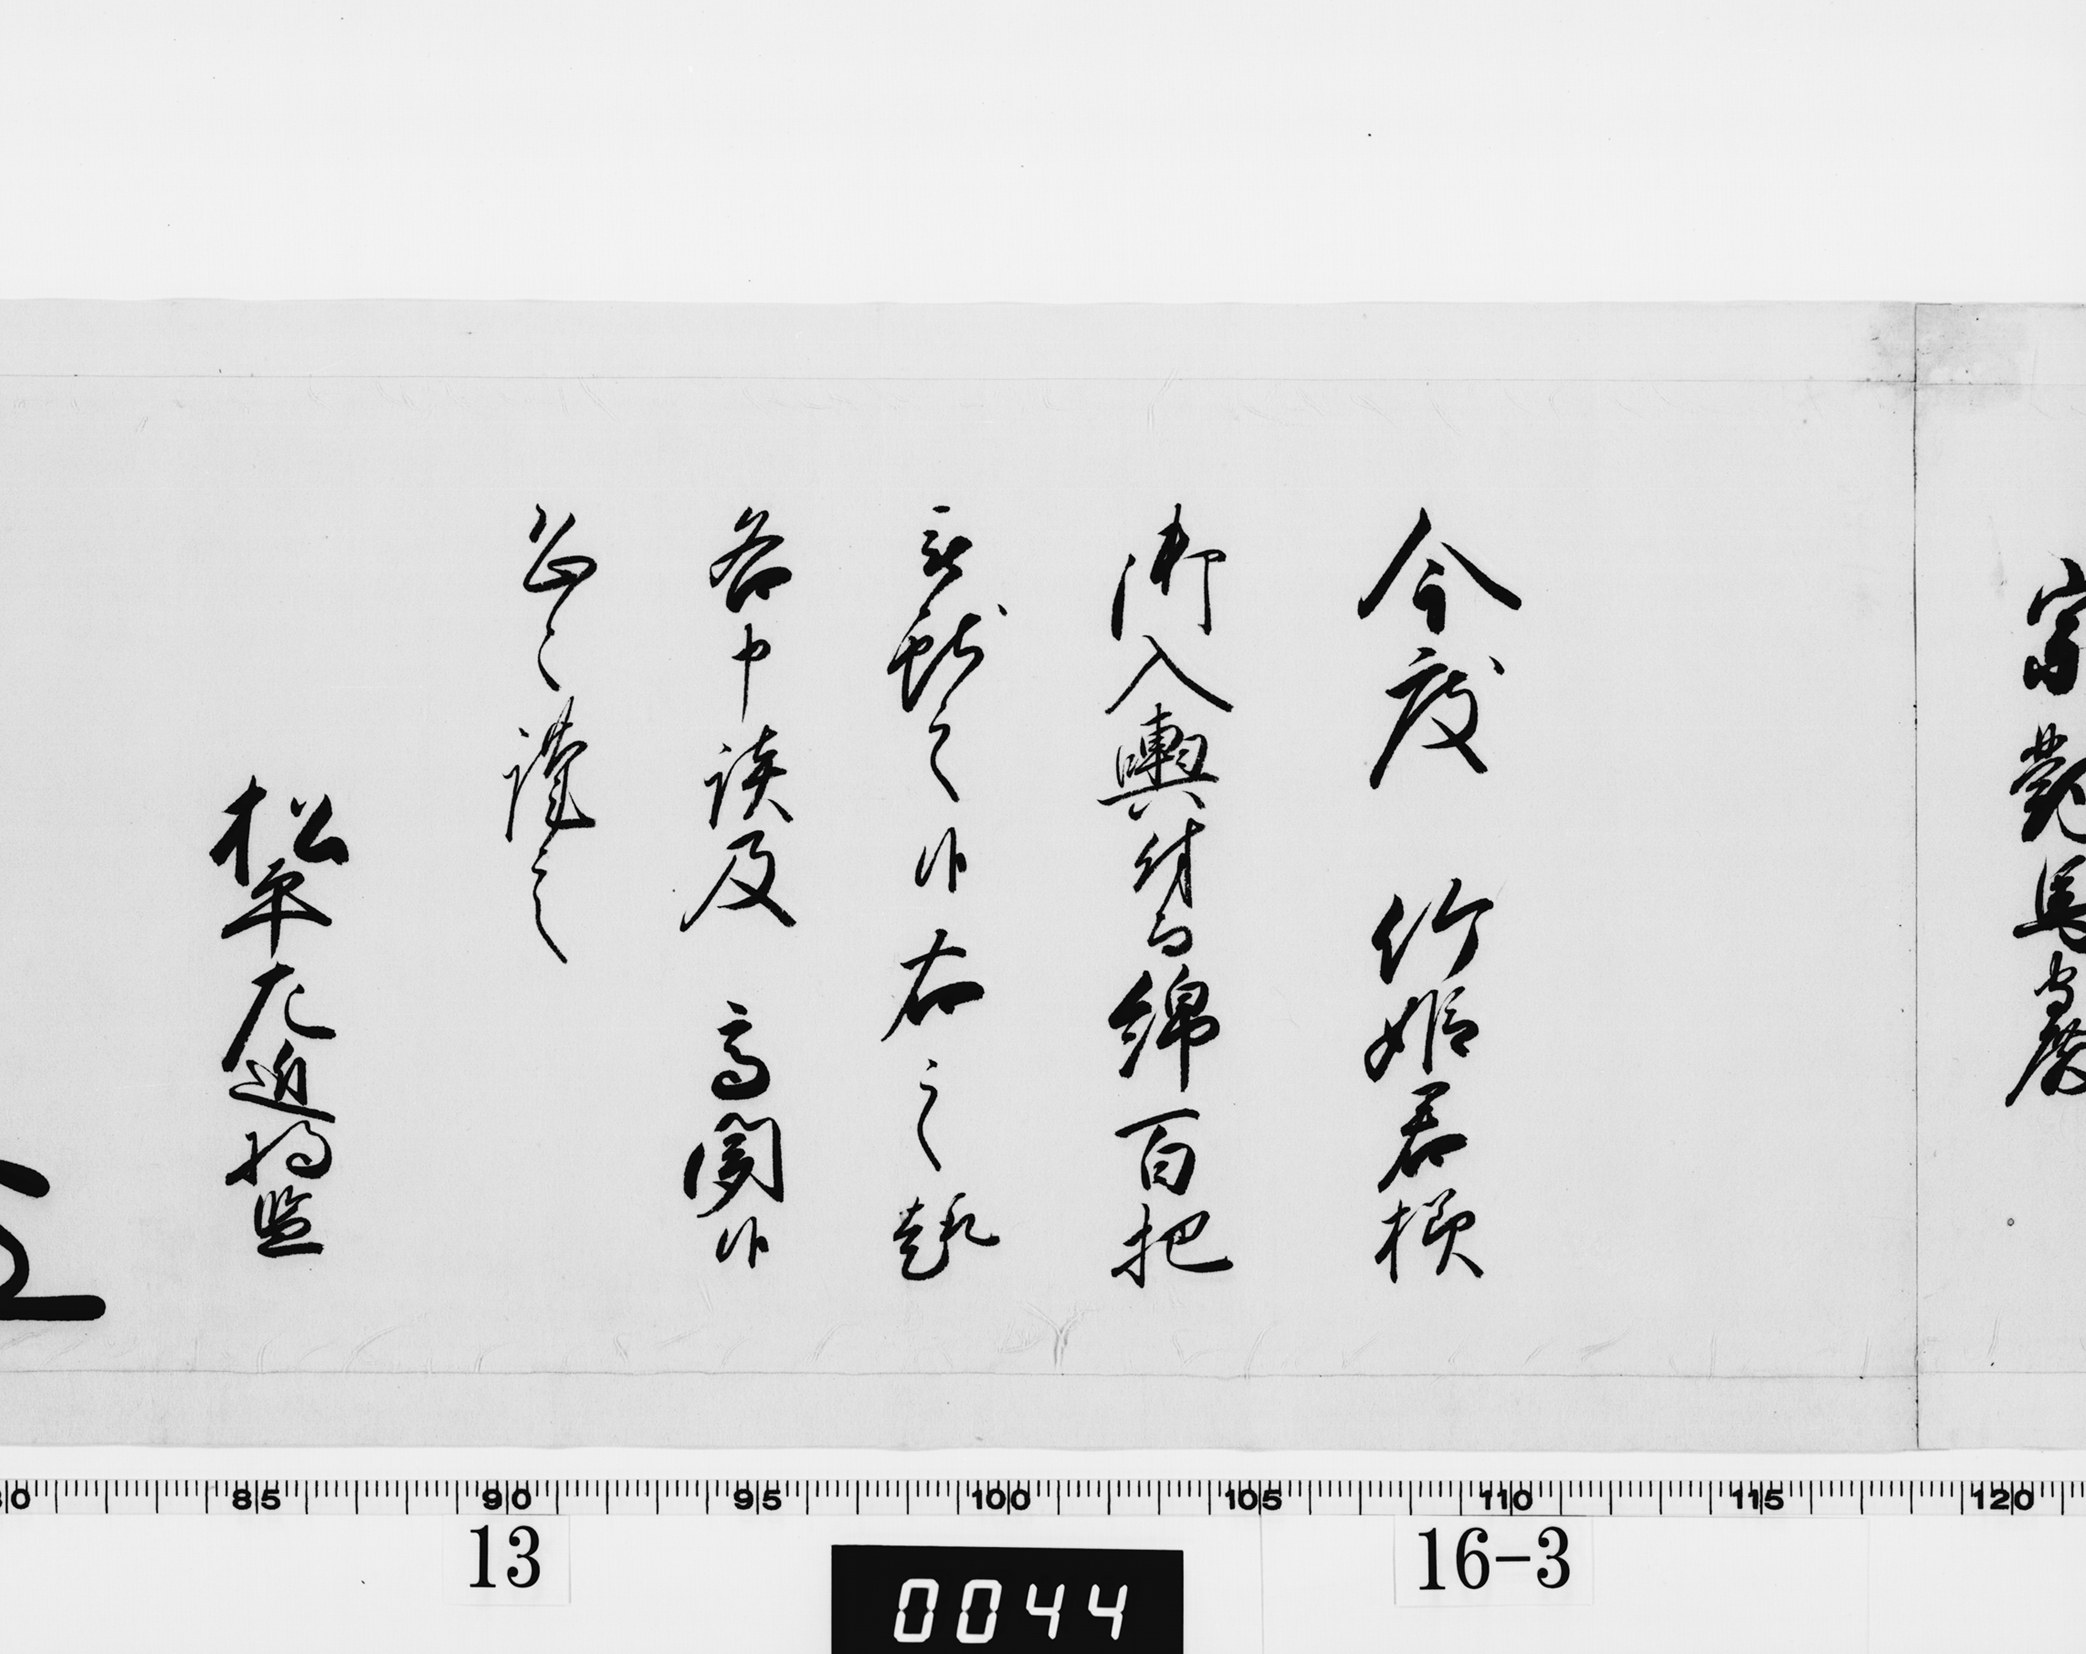 宗對馬守殿
今度　竹姫君様
御入輿付而綿百把
献之候右之趣
各申談及　高聞候
恐々謹言
松平左近将監
80 85 90 95 100 105 110 115 120
13
16-3
0044